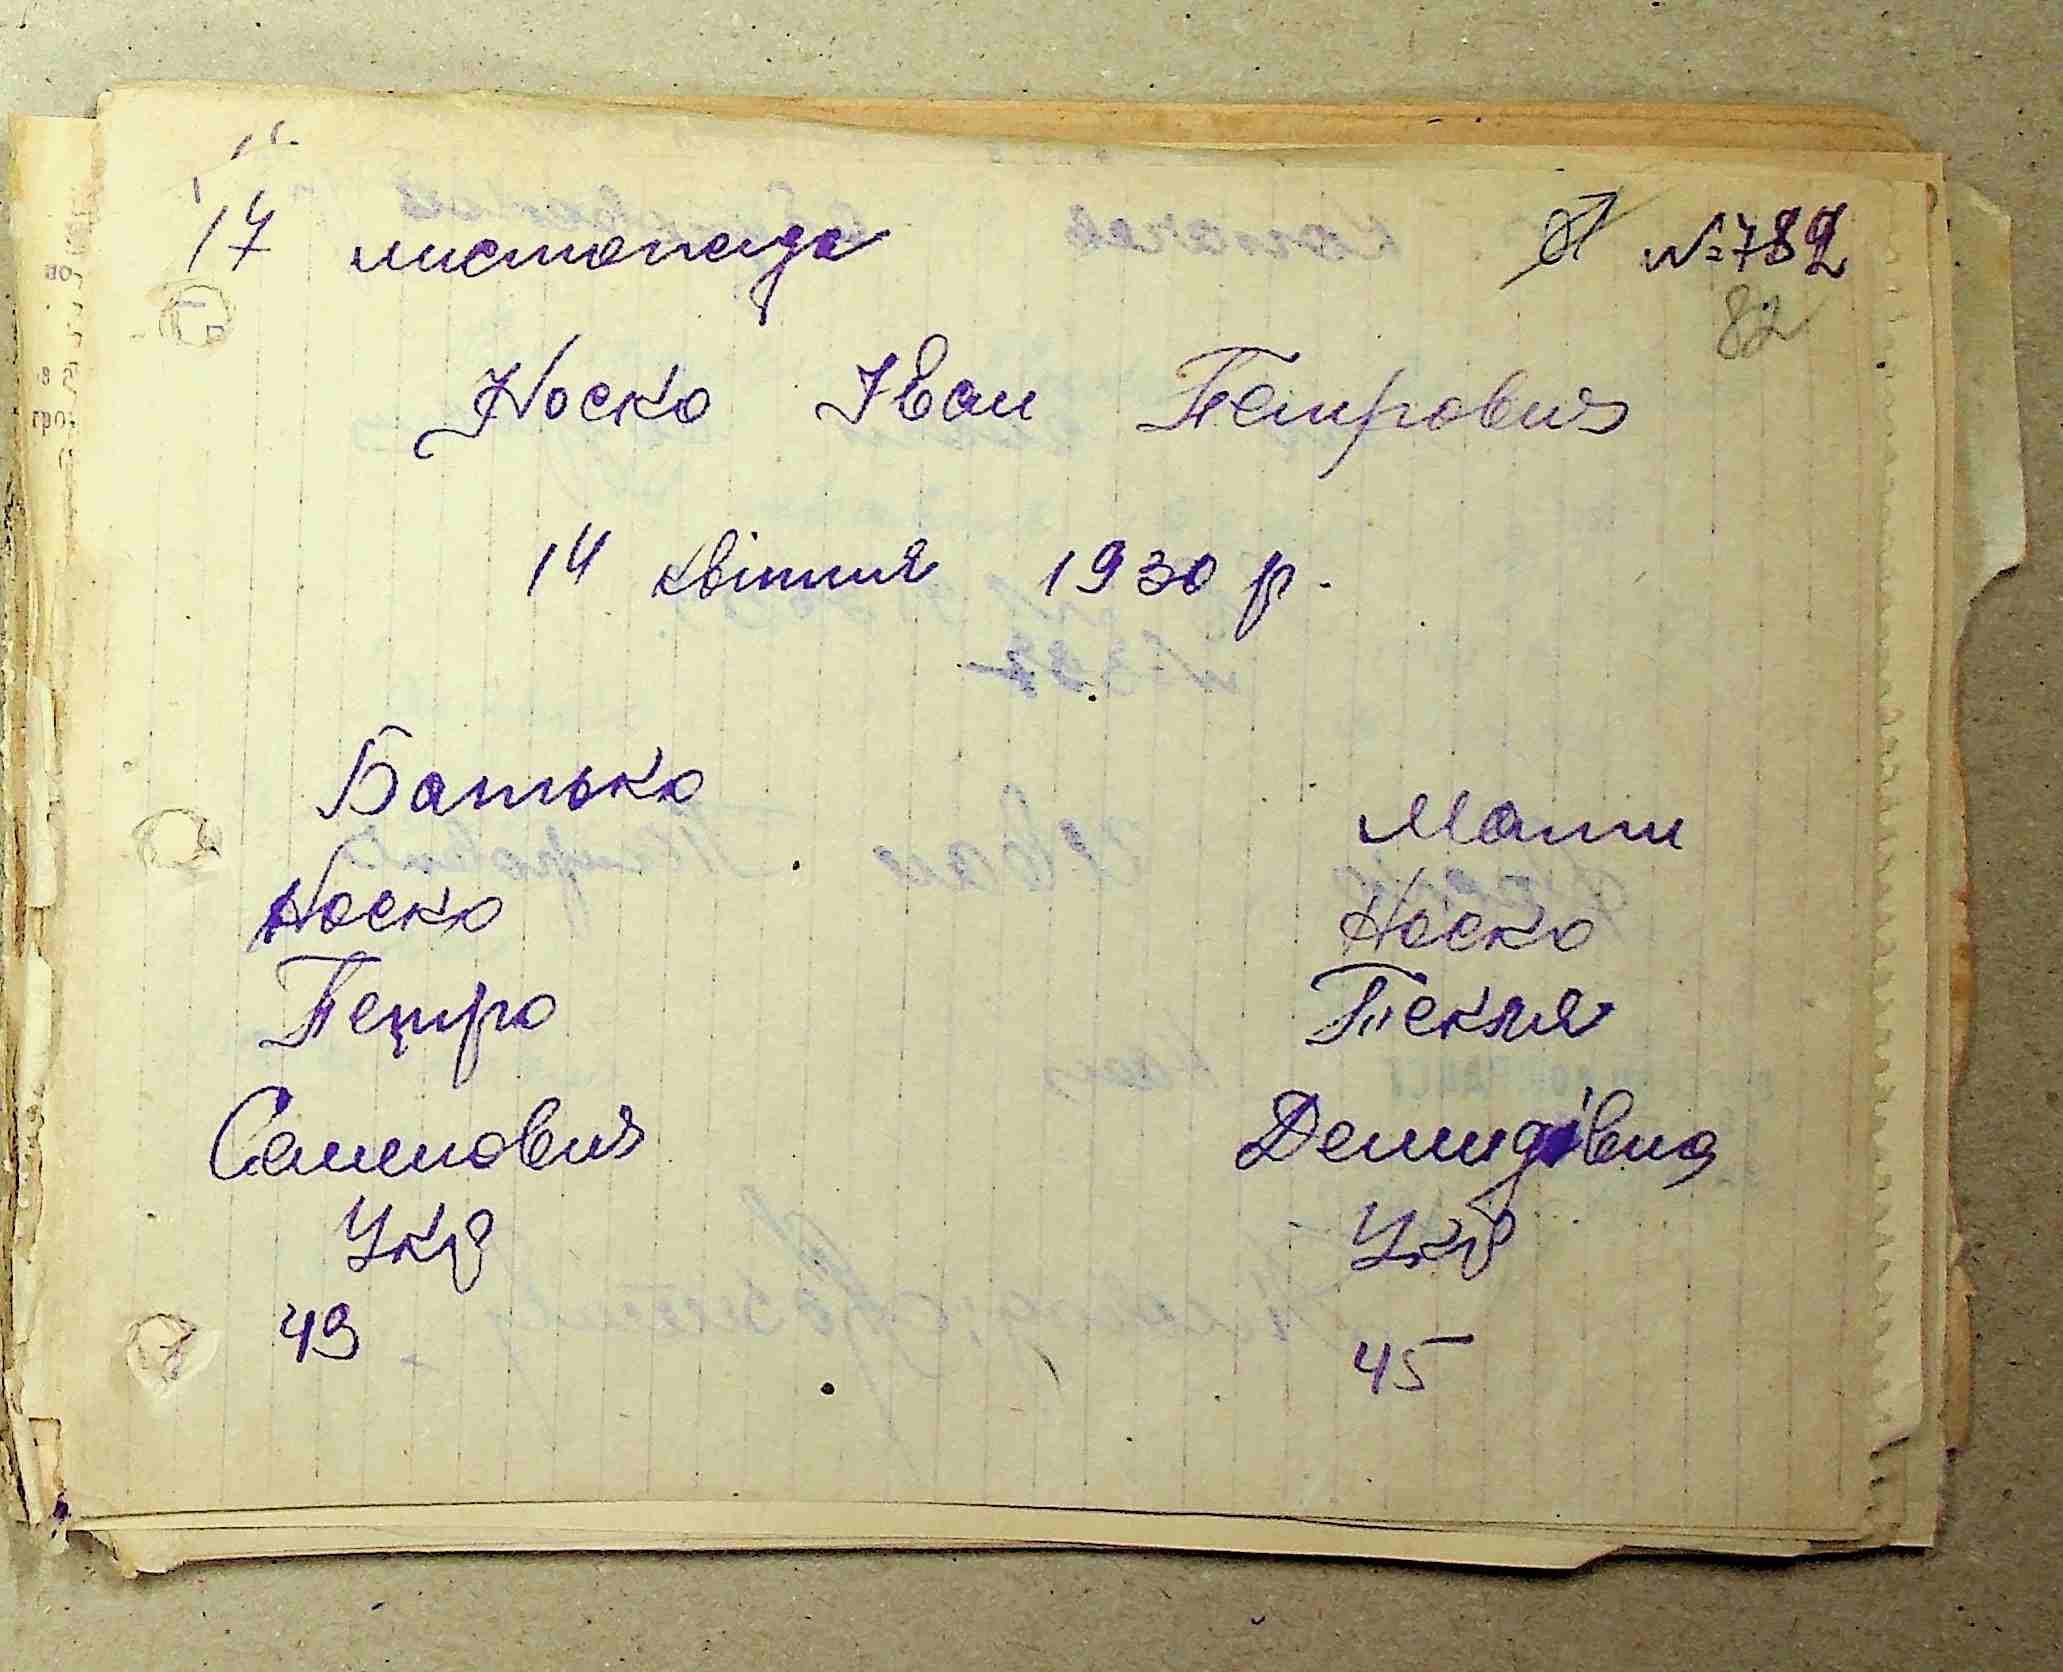 17 листопада № 782
82
Носко Іван Петрович
14 квітня 1930 р.
Батько Мати
Носко Носко
Петро Текля
Семенович Демидівна
Укр Укр
49 45